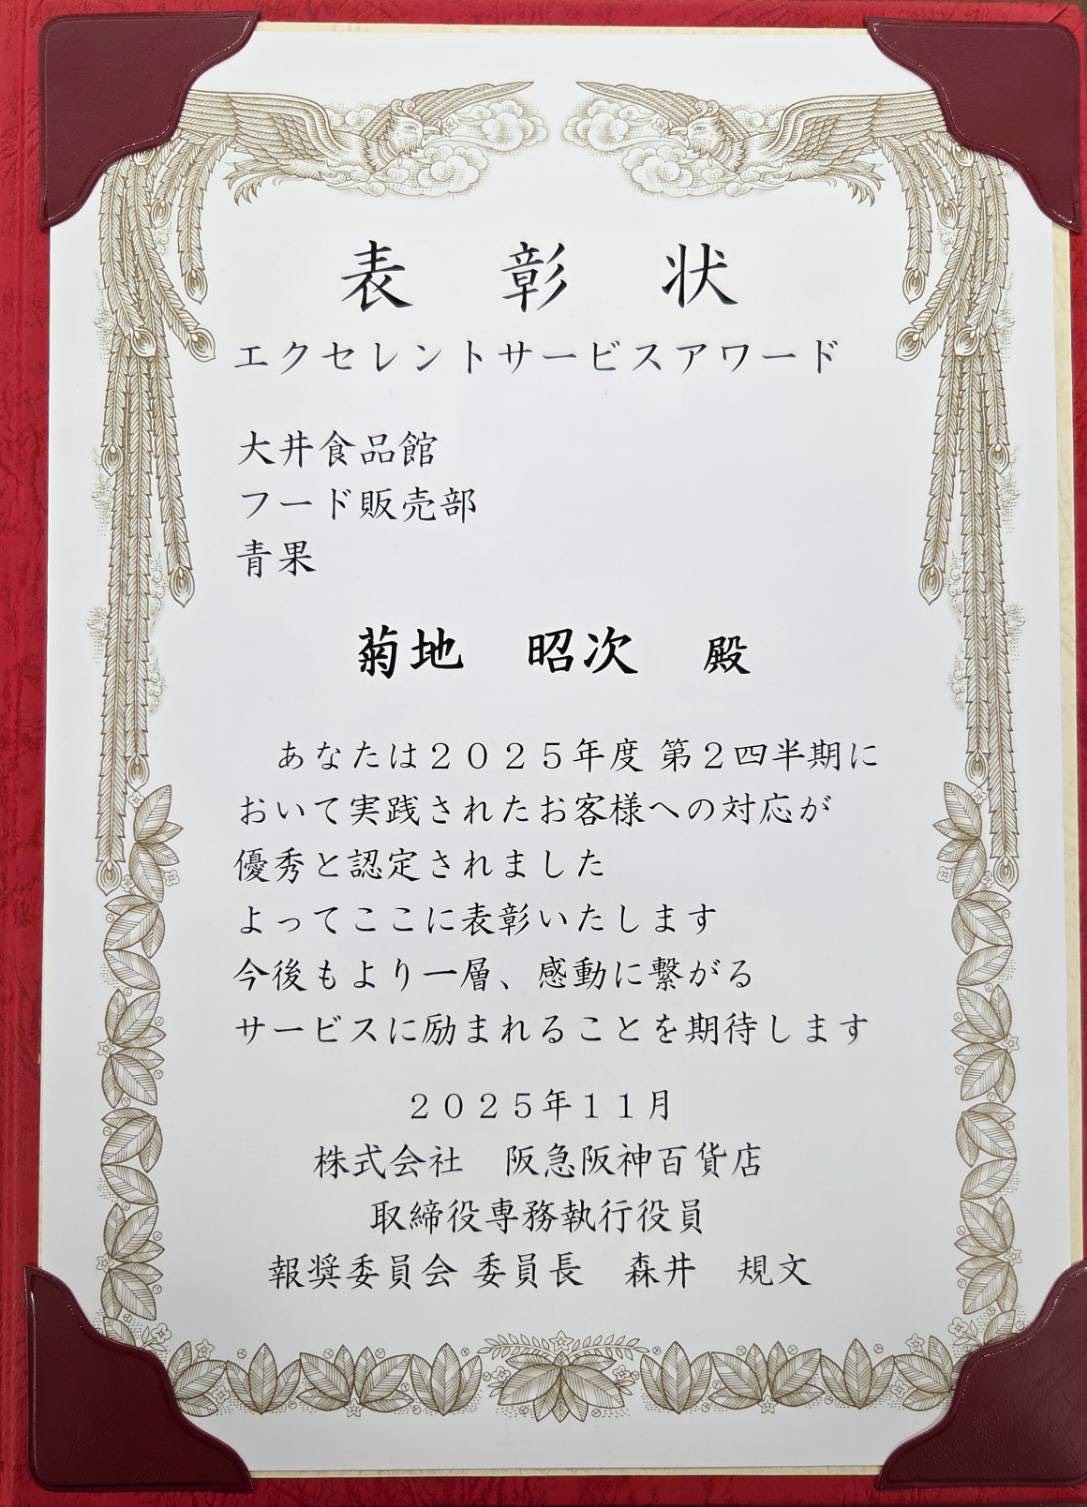 表　彰　状
エクセレントサービスアワード
大井食品館
フード販売部
青果
菊地　昭次　殿
あなたは２０２５年度 第２四半期に
おいて実践されたお客様への対応が
優秀と認定されました
よってここに表彰いたします
今後もより一層、感動に繋がる
サービスに励まれることを期待します
２０２５年１１月
株式会社　阪急阪神百貨店
取締役専務執行役員
報奨委員会 委員長　森井　規文